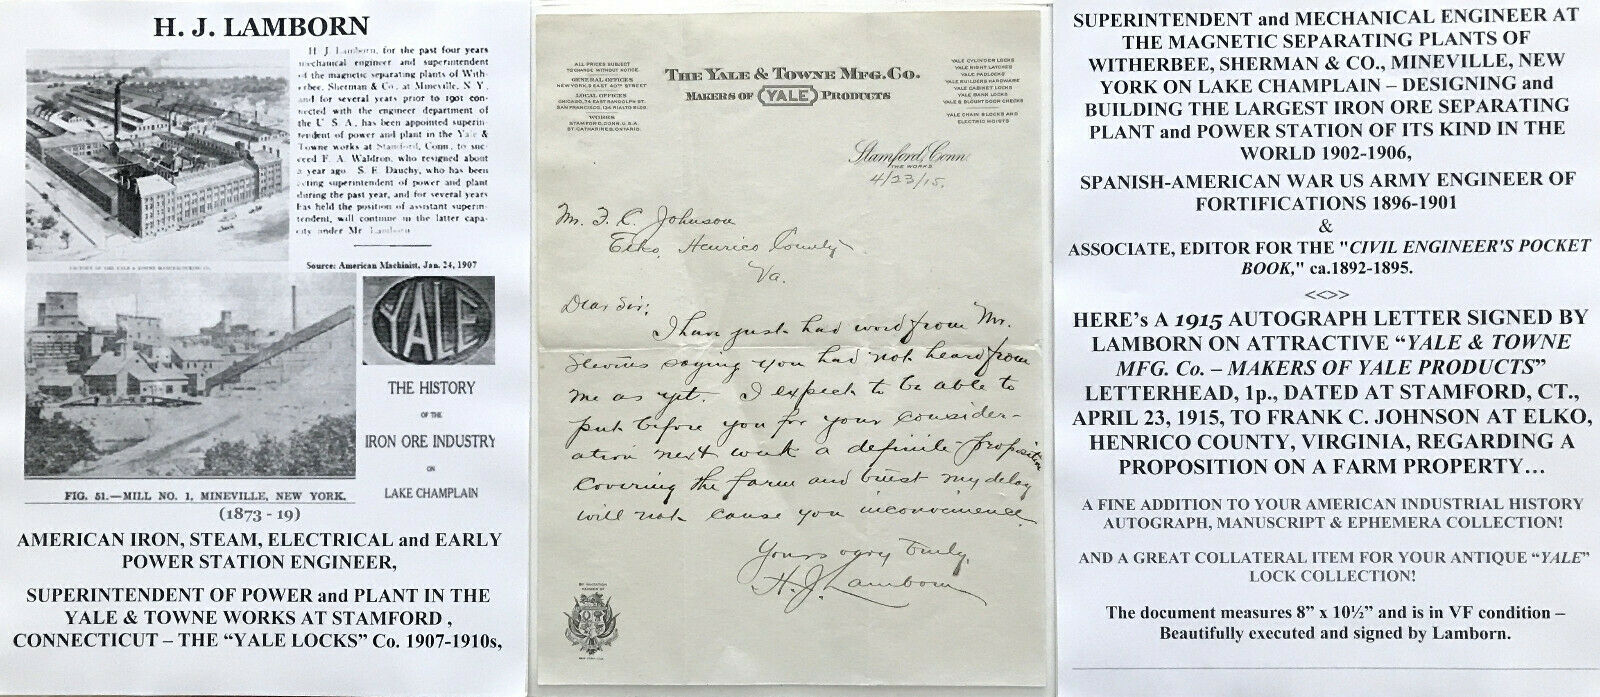 H. J. LAMBORN
H. J. Lamborn, for the past four years
mechanical engineer and superintendent
of the magnetic separating plants of With-
erbee, Sherman & Co., at Mineville, N. Y.,
and for several years prior to 1901 con-
nected with the engineer department of
the U. S. A., has been appointed superin-
tendent of power and plant in the Yale &
Towne works at Stamford, Conn., to suc-
ceed F. A. Waldron, who resigned about
a year ago. S. E. Dauchy, who has been
acting superintendent of power and plant
during the past year, and for several years
has held the position of assistant superin-
tendent, will continue in the latter capa-
city under Mr. Lamborn.
Source: American Machinist, Jan. 24, 1907
FACTORY OF THE YALE & TOWNE MANUFACTURING CO.
YALE
THE HISTORY
OF THE
IRON ORE INDUSTRY
ON
LAKE CHAMPLAIN
FIG. 51.—MILL NO. 1, MINEVILLE, NEW YORK.
(1873 - 19)
AMERICAN IRON, STEAM, ELECTRICAL and EARLY
POWER STATION ENGINEER,
SUPERINTENDENT OF POWER and PLANT IN THE
YALE & TOWNE WORKS AT STAMFORD ,
CONNECTICUT – THE “YALE LOCKS” Co. 1907-1910s,
ALL PRICES SUBJECT
TO CHANGE WITHOUT NOTICE.
GENERAL OFFICES
NEW YORK, 9 EAST 40TH STREET
LOCAL OFFICES
CHICAGO, 74 EAST RANDOLPH ST.
SAN FRANCISCO, 134 RIALTO BLDG.
WORKS
STAMFORD, CONN. U.S.A.
ST. CATHARINES, ONTARIO.
THE YALE & TOWNE MFG. CO.
MAKERS OF YALE PRODUCTS
YALE CYLINDER LOCKS
YALE NIGHT LATCHES
YALE PADLOCKS
YALE BUILDERS HARDWARE
YALE CABINET LOCKS
YALE BANK LOCKS
YALE & BLOUNT DOOR CHECKS
YALE CHAIN BLOCKS AND
ELECTRIC HOISTS
Stamford, Conn.
THE WORKS
4/23/15.
Mr. F. C. Johnson
Elko, Henrico County
Va.
Dear Sir:
I have just had word from Mr.
saying you had not heard from
me as yet. I expect to be able to
put before you for your consider-
ation next week a definite proposition
covering the farm and trust my delay
will not cause you inconvenience.
Yours very truly,
H. J. Lamborn
BY INVITATION
MEMBER OF
NEW YORK, U.S.A.
SUPERINTENDENT and MECHANICAL ENGINEER AT
THE MAGNETIC SEPARATING PLANTS OF
WITHERBEE, SHERMAN & CO., MINEVILLE, NEW
YORK ON LAKE CHAMPLAIN – DESIGNING and
BUILDING THE LARGEST IRON ORE SEPARATING
PLANT and POWER STATION OF ITS KIND IN THE
WORLD 1902-1906,
SPANISH-AMERICAN WAR US ARMY ENGINEER OF
FORTIFICATIONS 1896-1901
&
ASSOCIATE, EDITOR FOR THE "CIVIL ENGINEER'S POCKET
BOOK," ca.1892-1895.
<<>>
HERE’s A 1915 AUTOGRAPH LETTER SIGNED BY
LAMBORN ON ATTRACTIVE “YALE & TOWNE
MFG. Co. – MAKERS OF YALE PRODUCTS”
LETTERHEAD, 1p., DATED AT STAMFORD, CT.,
APRIL 23, 1915, TO FRANK C. JOHNSON AT ELKO,
HENRICO COUNTY, VIRGINIA, REGARDING A
PROPOSITION ON A FARM PROPERTY…
A FINE ADDITION TO YOUR AMERICAN INDUSTRIAL HISTORY
AUTOGRAPH, MANUSCRIPT & EPHEMERA COLLECTION!
AND A GREAT COLLATERAL ITEM FOR YOUR ANTIQUE “YALE”
LOCK COLLECTION!
The document measures 8” x 10½” and is in VF condition –
Beautifully executed and signed by Lamborn.